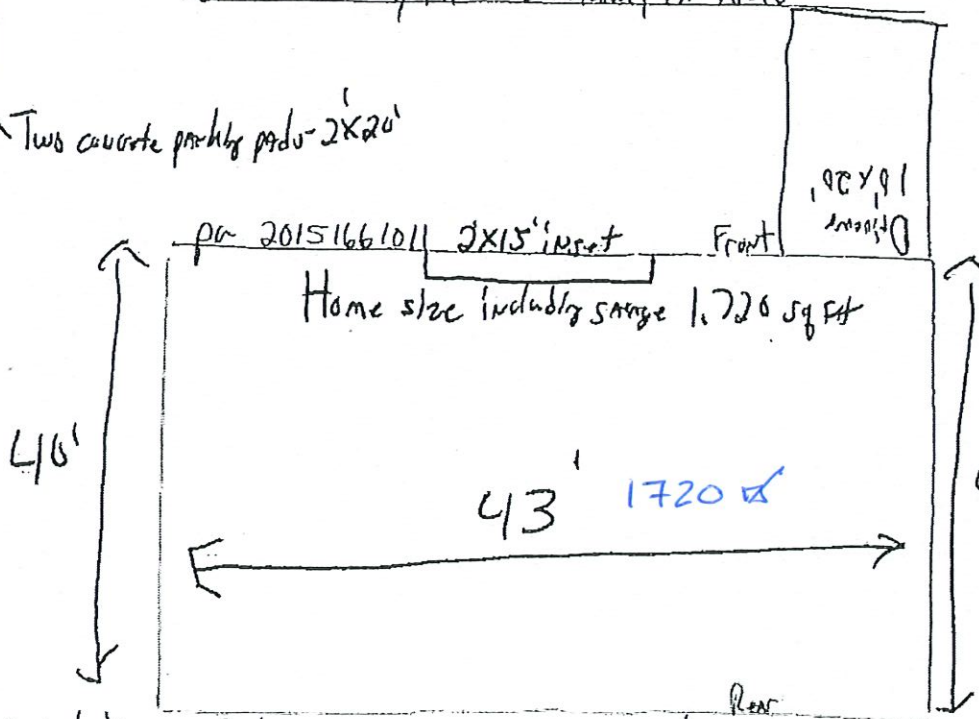 Two concrete parking pads - 2'x20'
10'x20'
Driveway
per 20151661011 2x15' inset Front
Home size including garage 1,720 sq Ft
40'
43' 1720
Rear